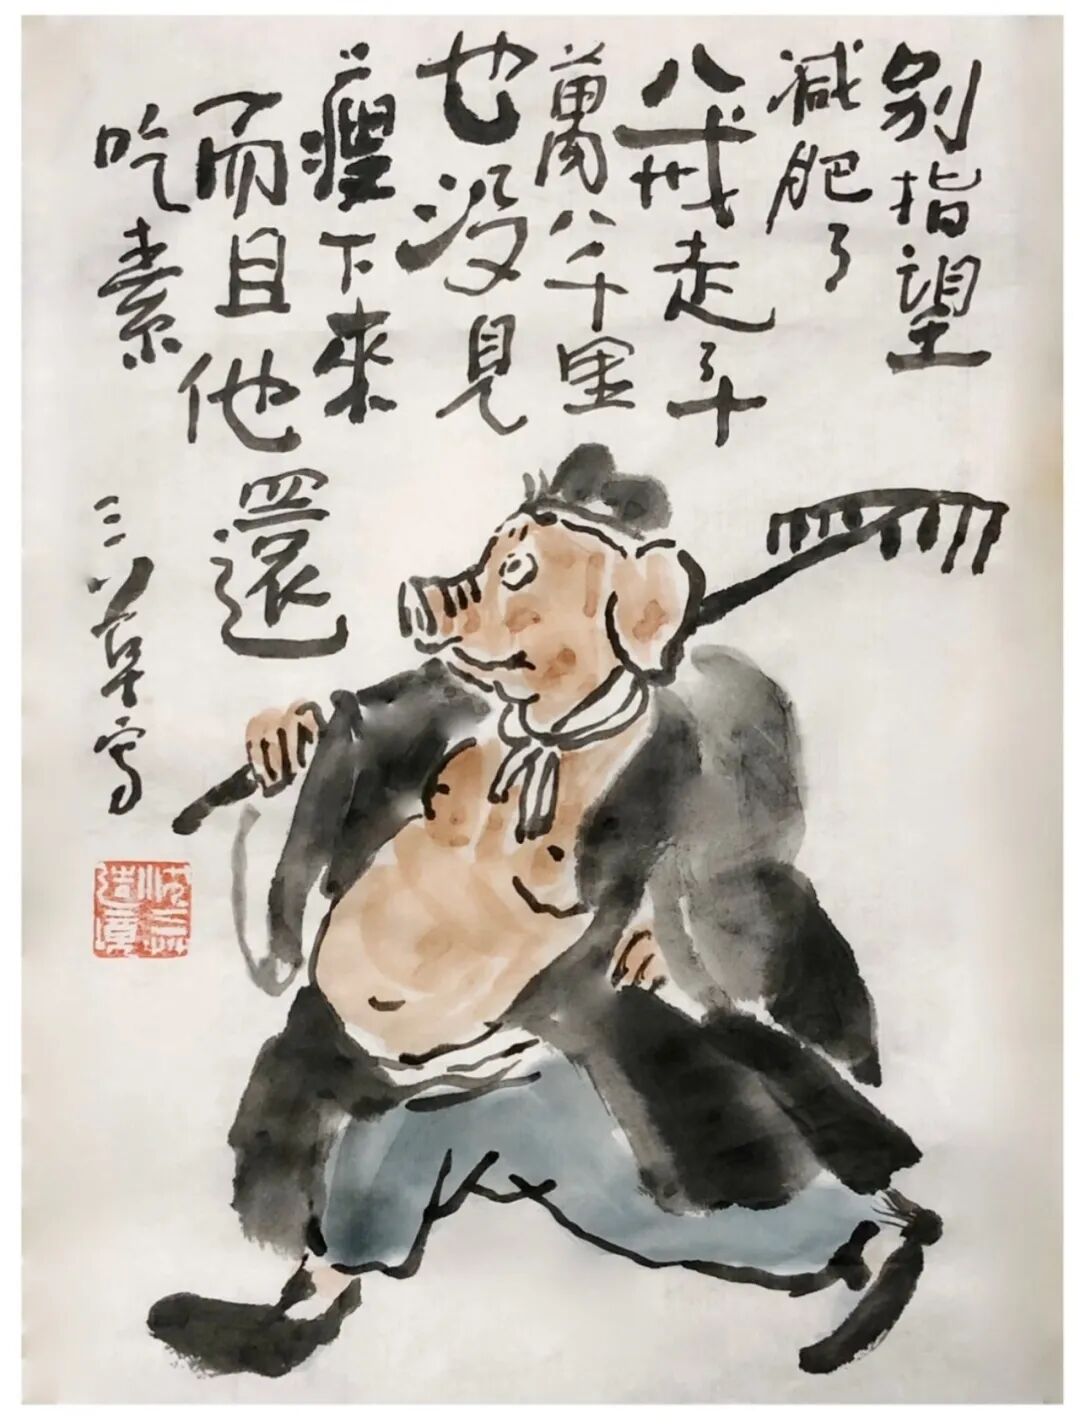 别指望
減肥了
八戒走了十
萬八千里
也没見
瘦下來
而且他還
吃素
三草写